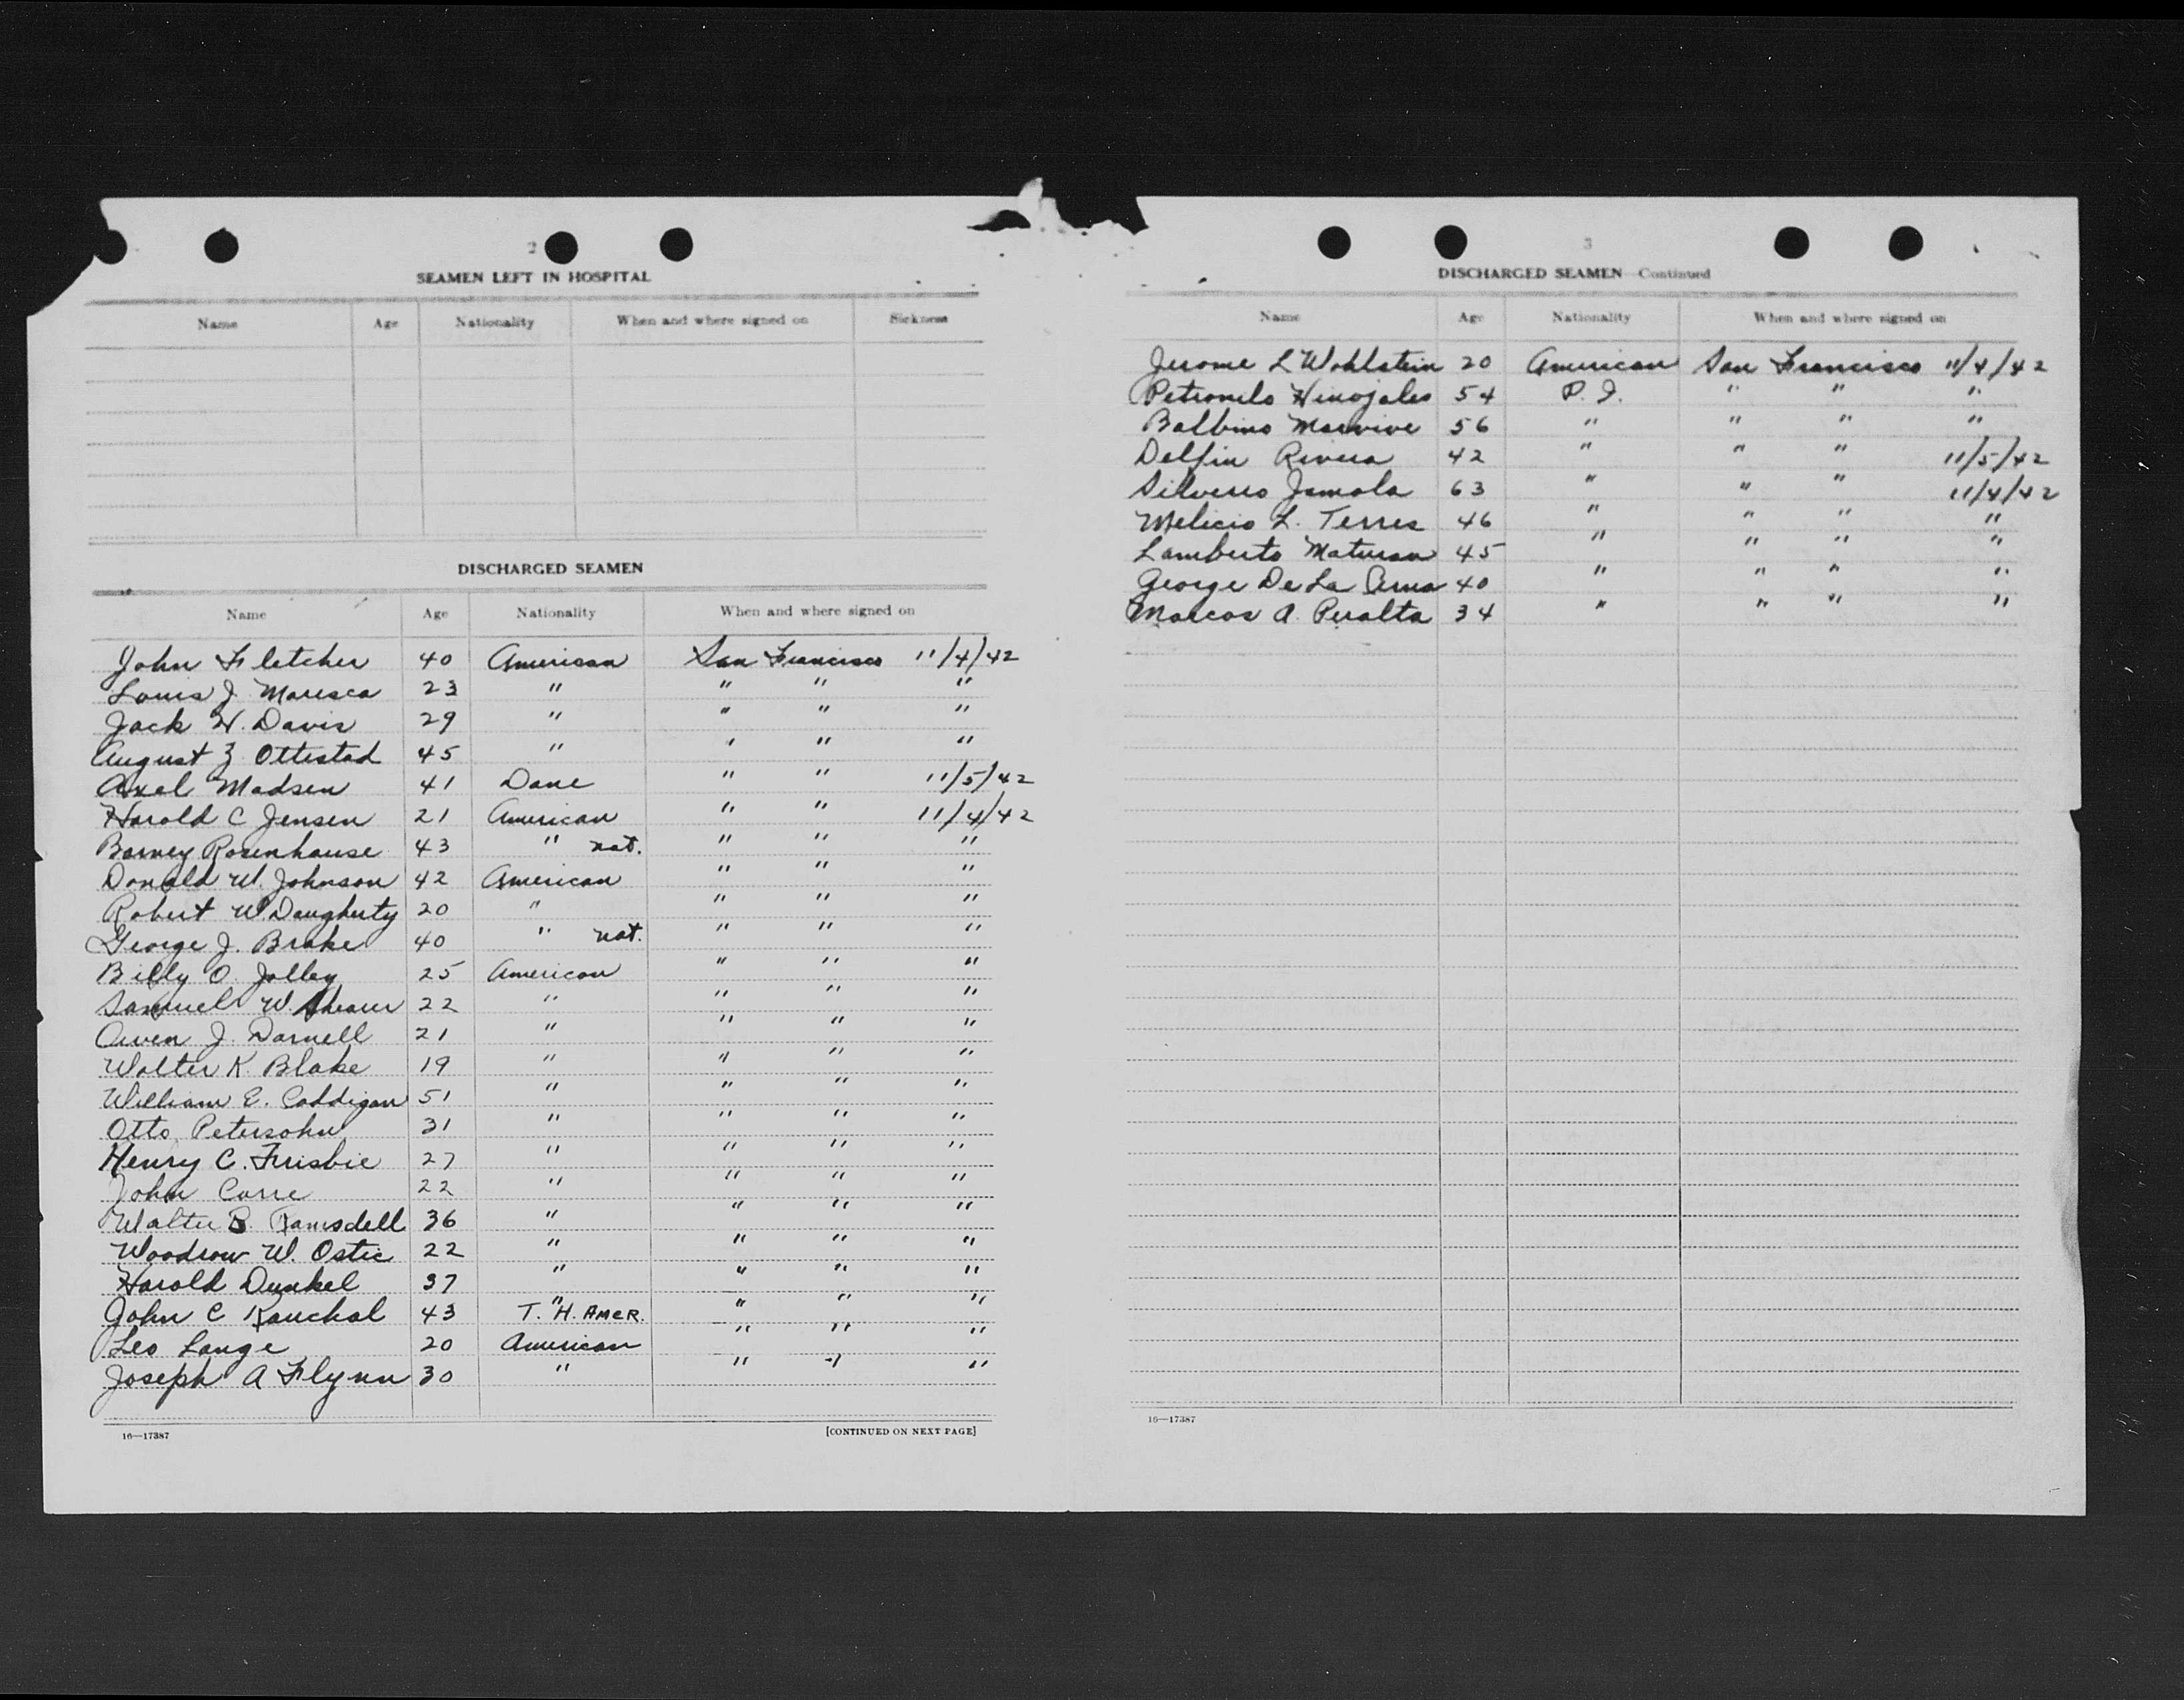 2
SEAMEN LEFT IN HOSPITAL
Name Age Nationality When and where signed on Sickness
DISCHARGED SEAMEN
Name Age Nationality When and where signed on
John Fletcher 40 American San Francisco 11/4/42
Louis J. Maresca 23 " " " "
Jack H. Davis 29 " " " "
August Z Ottestad 45 " " " "
Axel Madsen 41 Dane " " 11/5/42
Harold C Jensen 21 American " " 11/4/42
Barney Rosenhause 43 " nat. " " "
Donald W. Johnson 42 American " " "
Robert W Daugherty 20 " " " "
George J. Brake 40 " nat. " " "
Billy O. Jolley 25 American " " "
Samuel W. Shearer 22 " " " "
Owen J. Darnell 21 " " " "
Walter K. Blake 19 " " " "
William E. Caddigan 51 " " " "
Otto Petersohn 31 " " " "
Henry C. Frisbie 27 " " " "
John Carre 22 " " " "
Walter B. Ramsdell 36 " " " "
Woodrow W. Ostic 22 " " " "
Harold Dunkel 37 " " " "
John C Kauchal 43 T. H. AMER. " " "
Leo Lange 20 American " " "
Joseph A Flynn 30 " " " "
16—17387 [CONTINUED ON NEXT PAGE]
3
DISCHARGED SEAMEN—Continued
Name Age Nationality When and where signed on
Jerome L Wohlstein 20 American San Francisco 11/4/42
Petronilo Hinojales 54 P. I. " " "
Balbino 56 " " " "
Delfin Rivera 42 " " " 11/5/42
Silverio Jamola 63 " " " 11/4/42
Melicio L. Terres 46 " " " "
Lamberto Maturan 45 " " " "
George De La Cerna 40 " " " "
Marcos A. Peralta 34 " " " "
16—17387